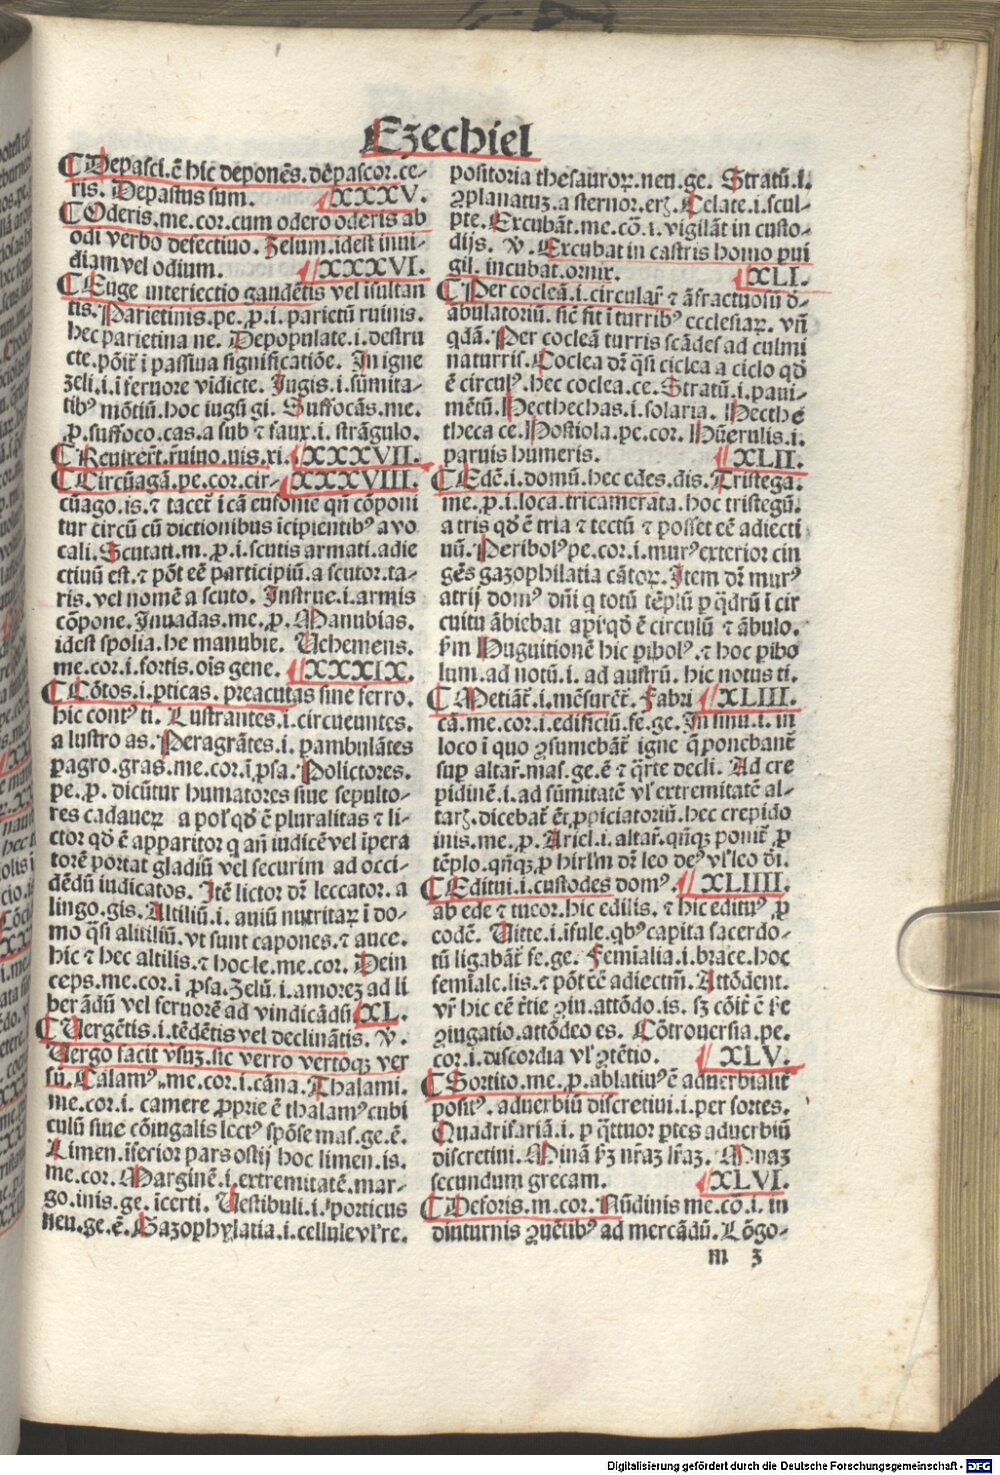 Ezechiel
¶ Depasci.ē hic deponēs.depascor.ce-
ris. Depastus sum. XXXV.
¶ Oderis.me.cor.cum odero oderis ab
odi verbo defectiuo. Zelum.idest inui-
diam vel odium. XXXVI.
¶ Euge interiectio gaudētis vel īsultan
tis. Parietinis.pe.ꝓ.i.parietū ruinis.
hec parietina ne. Depopulate.i.destru
cte.pōit̄ ī passiua significatiōe. In igne
zeli.i.ī feruore vīdicte. Jugis.i.sūmita-
tibꝰ mōtiū.hoc iugū gi. Suffocās.me.
ꝓ.suffoco.cas.a sub ⁊ faux.i. strāgulo.
¶ Reuixer̄t.r̄uiuo.uis.xi. XXXVII.
¶ Circūagā.pe.cor.cir- XXXVIII.
cūago.is.⁊ tacet̄ ī cā eufonie qn̄ cōponi
tur circū cū dictionibus īcipientibꝰ a vo
cali. Scutati.m.ꝓ.i.scutis armati.adie
ctiuū est.⁊ pōt eē participiū.a scutor.ta-
ris.vel nomē a scuto. Instrue.i.armis
cōpone. Inuadas.me.ꝓ. Manubias.
idest spolia.he manubie. Uehemens.
me.cor.i.fortis.oīs gene. XXXIX.
¶ Cōtos.i.ꝑticas. preacutas sine ferro.
hic contꝰ ti. Lustrantes.i.circueuntes.
a lustro as. Peragrātes.i. ꝑambulātes
ꝑagro.gras.me.cor.ī ꝑsa. Polictores.
pe.ꝓ. dicūtur humatores siue sepulto-
res cadaueꝝ a pol' qd̓ ē pluralitas ⁊ li-
ctor qd̓ ē apparitor q an̄ iudicē vel īpera
torē portat gladiū vel securim ad occi-
dēdū iudicatos. Itē lictor dr̄ leccator. a
lingo.gis. Altiliū.i. auiū nutritaꝝ ī do-
mo q̄si alitiliū.vt sunt capones.⁊ auce.
hic ⁊ hec altilis.⁊ hoc le.me.cor. Dein
ceps.me.cor.ī ꝓsa.Zelū.i.amorez ad li
berādū vel feruorē ad vindicādū. XL.
¶ Uergētis.i.tēdētis vel declinātis. v̄.
Uergo facit v̓suz.sic verro vertoqz ver
sū. Calamꝰ.me.cor.i.cāna. Thalami.
me.cor.i. camere ꝓprie ē thalamꝰ cubi
culū siue cōiugalis lectꝰ spōse mas.ge.ē.
Limen.īferior pars ostij hoc limen.is.
me.cor. Marginē.i.extremitatē.mar-
go.inis.ge.īcerti. Uestibuli.i.ꝑorticus
neu.ge.ē. Gazophylatia.i.cellule vl̓ re.
positoria thesauroꝝ.neu.ge. Stratū.i.
ꝯplanatuz.a sternor.erꝭ. Celate.i.scul-
pte. Excubāt.me.cō.i.vigilāt in custo-
dijs. v̄. Excubat in castris homo ꝑui
gil. incubat.ornix. XLI.
¶ Per cocleā.i.circularē ⁊ āfractuosū d̓-
abulatoriū. sic̄ fit ī turribꝰ ecclesiaꝝ. vn̄
qdā. Per cocleā turris scādes ad culmi
na turris. Coclea dr̄ q̄si ciclea a ciclo qd̓
ē circulꝰ.hec coclea.ce. Stratū.i.paui-
mētū. Pecthechas.i.solaria. Pecthe
theca ce. Postiola.pe.cor. Hūerulis.i.
paruis humeris. XLII.
¶ Edē.i.domū.hec edes.dis. Tristega.
me.ꝓ.i.loca.tricamerata.hoc tristegū.
a tris qd̓ ē tria ⁊ tectū ⁊ posset eē adiecti
uū. Peribolꝰ pe.cor.i.murꝰ exterior cin
gēs gazophilatia cātoꝝ. Item dr̄ murꝰ
atrij domꝰ dn̄i q totū tēplū ꝑ q̄drū ī cir
cuitu ābiebat a peri qd̓ ē circulū ⁊ ābulo.
ẜm Huguitionē hic ꝑibolꝰ.⁊ hoc ꝑibo
lum.ad notū.i. ad austrū. hic notus ti.
¶ Metiāt̄.i.mēsurēt̄. Fabri XLIII.
cā.me.cor.i.edificiū.fe.ge. In sinu.i. in
loco ī quo ꝯsumebāt̄ igne q̄ ponebant̄
suꝑ altar̄.mas.ge.ē ⁊ q̄rte decli. Ad cre
pidinē.i.ad sūmitatē vl̓ extremitatē al-
tarꝭ.dicebat̄ ēt ꝓpiciatoriū.hec crepido
inis.me.ꝓ. Ariel.i.altar̄.qn̄qꝫ ponit̄ ꝓ
tēplo.qn̄qꝫ ꝓ hirl̓m dr̄ leo deꝰ vl̓ leo d̓i.
¶ Editui.i.custodes domꝰ. XLIIII.
ab ede ⁊ tueor.hic edilis.⁊ hic edituꝰ ꝓ
eodē. Uitte.i.īfule.qbꝰ capita sacerdo-
tū ligabāt̄ fe.ge. Femīalia.i.brace.hoc
femīale.lis.⁊ pōt eē adiectm̄. Attōdent.
vn̄ hic eē t̄tie ꝯiu.attōdo.is. sꝫ cōit̄ ē ẜe
ꝯiugatio.attōdeo es. Cōtrouersia.pe.
cor.i.discordia vl̓ ꝯtētio. XLV.
¶ Sortito.me.ꝓ.ablatiuꝰ ē aduerbialit̄
positꝰ. aduerbiū discretiui.i.per sortes.
Quadrifariā.i. ꝑ q̄ttuor ꝑtes aduerbiū
discretiui. Minā ẜꝫ nr̄aꝫ lr̄aꝫ. Mnaꝫ
secundum grecam. XLVI.
¶ Deforis.m.cor. Nūdinis me.cō.i. in
diuturnis ꝯuētibꝰ ad mercādū. Lōgo-
m 3
Digitalisierung gefördert durch die Deutsche Forschungsgemeinschaft - DFG